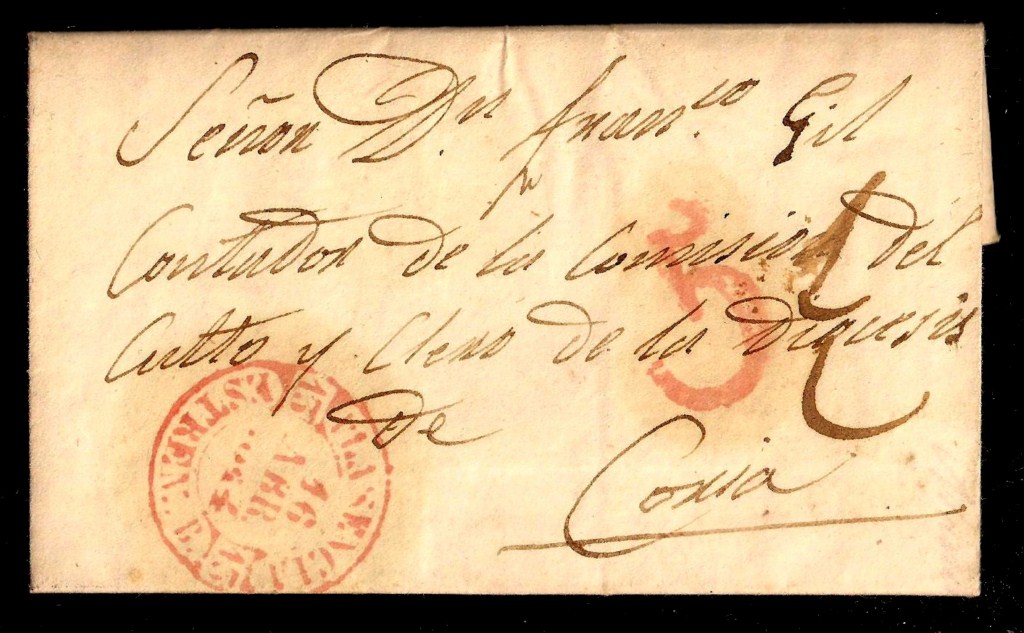 Señor Dn. Franco. Gil
Contador de la Comision del
Culto y Clero de la Diocesis
de
Coria
PLASENCIA
16
ABR